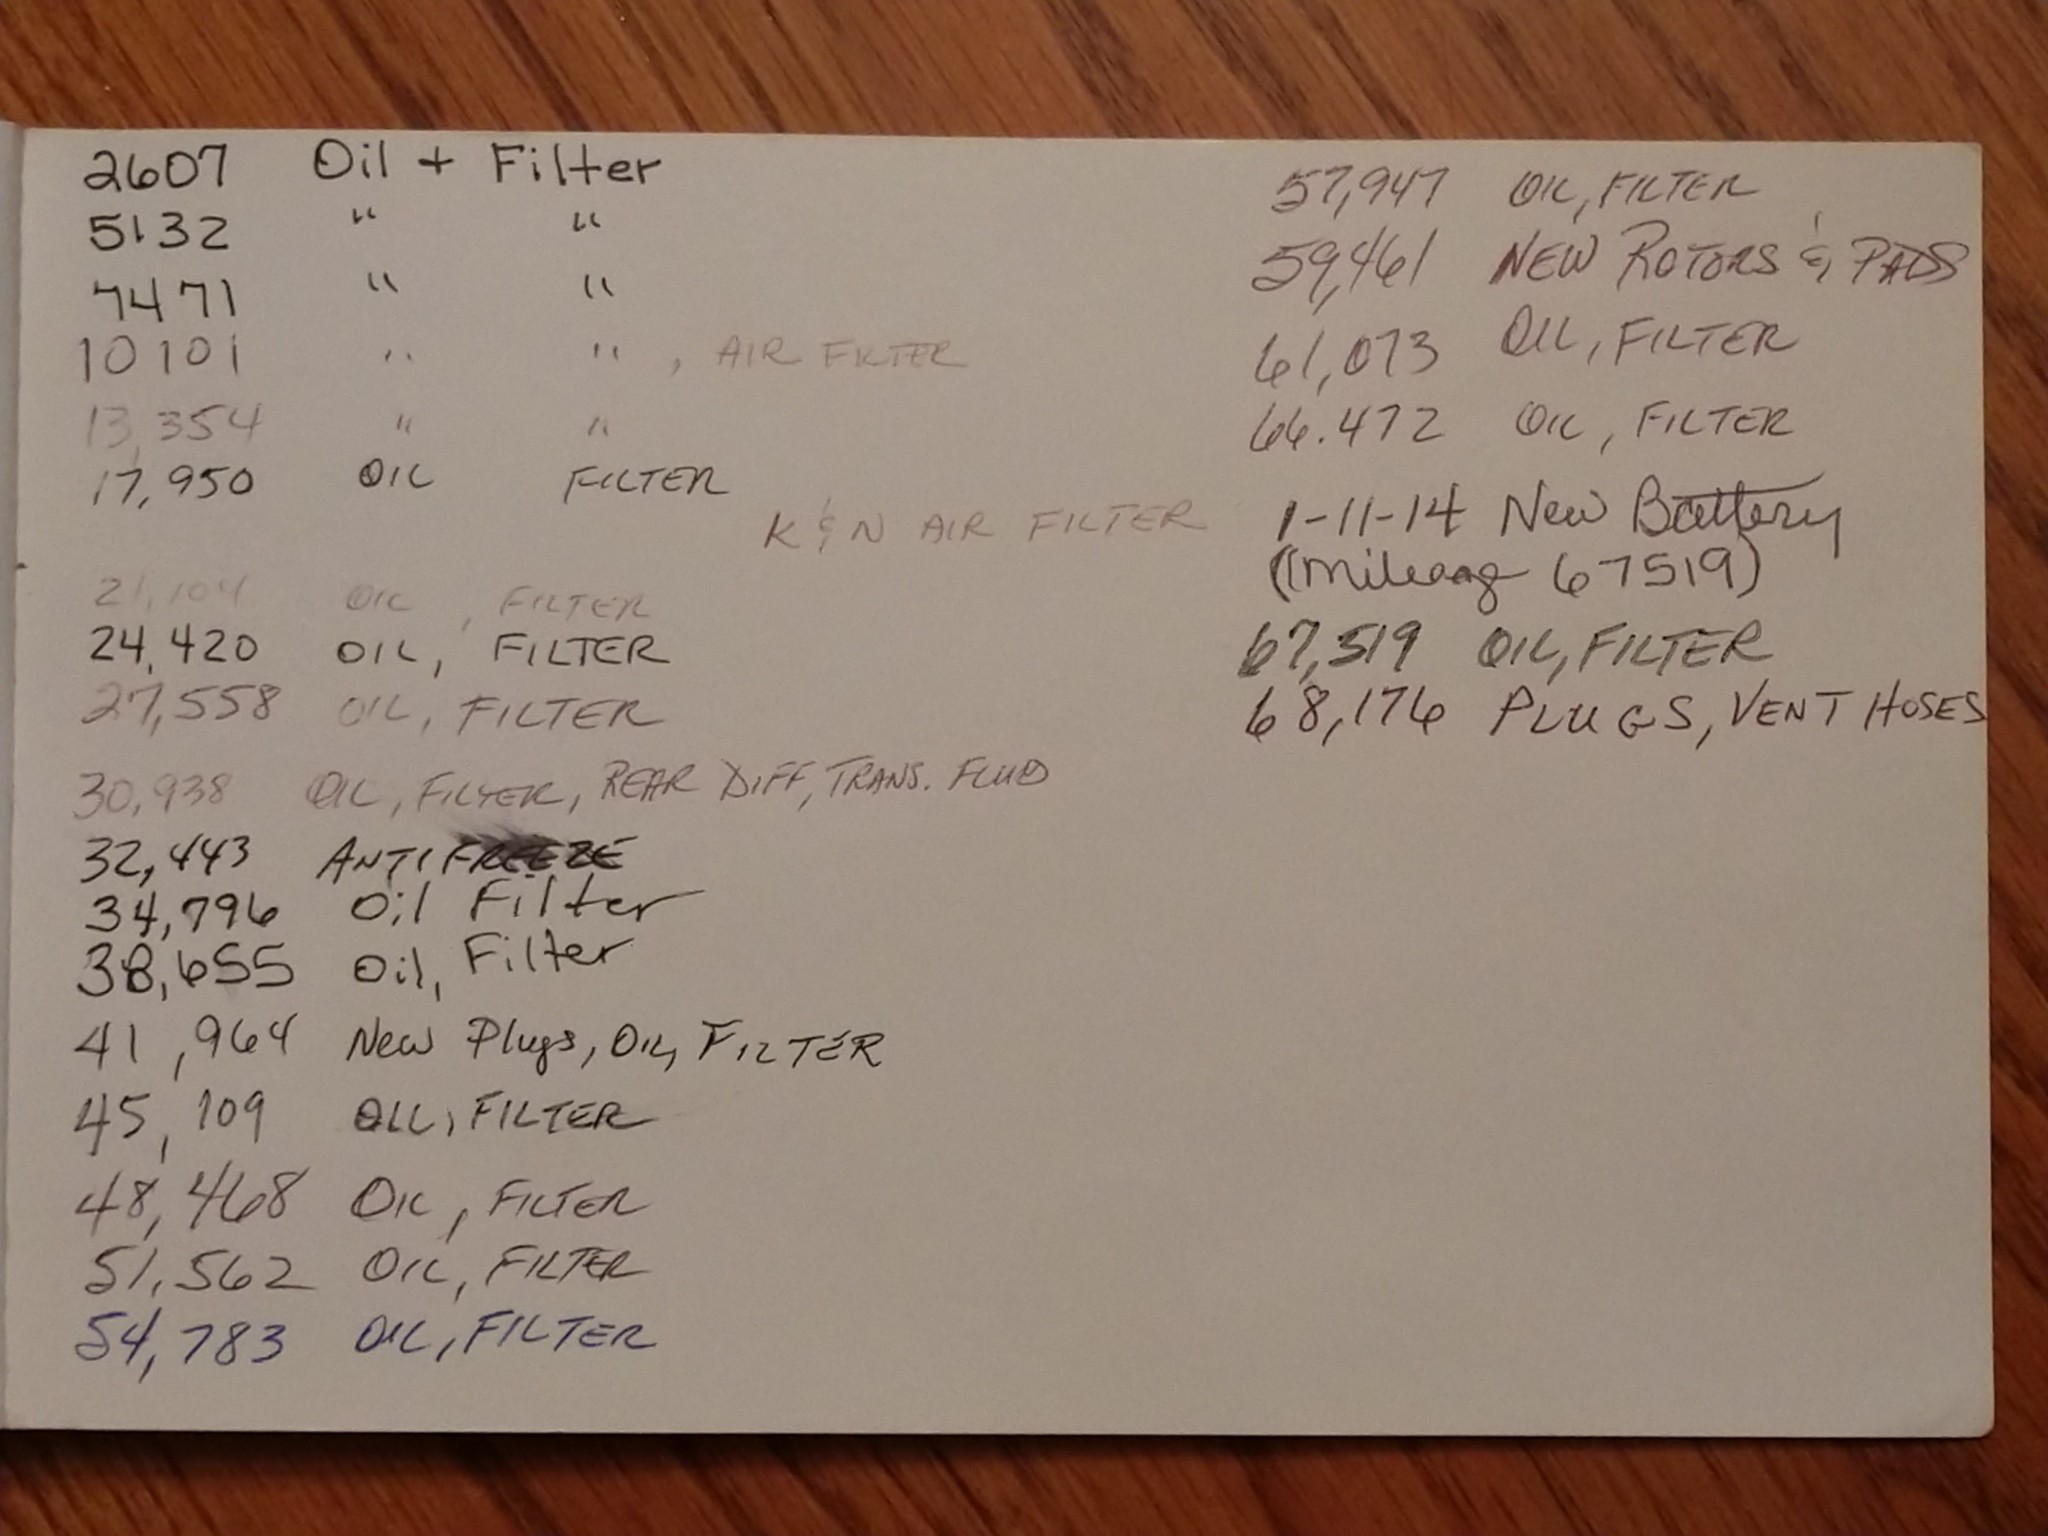 2607 Oil + Filter
5132 " "
7471 " "
10101 " ", AIR FILTER
13,354 " "
17,950 OIL FILTER
K & N AIR FILTER
21,104 OIL, FILTER
24,420 OIL, FILTER
27,558 OIL, FILTER
30,938 OIL, FILTER, REAR DIFF, TRANS. FLUID
32,443 ANTIFREEZE
34,796 Oil Filter
38,655 Oil, Filter
41,964 New Plugs, OIL, FILTER
45,109 OIL, FILTER
48,468 OIL, FILTER
51,562 OIL, FILTER
54,783 OIL, FILTER
57,947 OIL, FILTER
59,461 NEW ROTORS & PADS
61,073 OIL, FILTER
66.472 OIL, FILTER
1-11-14 New Battery
(Mileage 67519)
67,519 OIL, FILTER
68,176 PLUGS, VENT HOSES